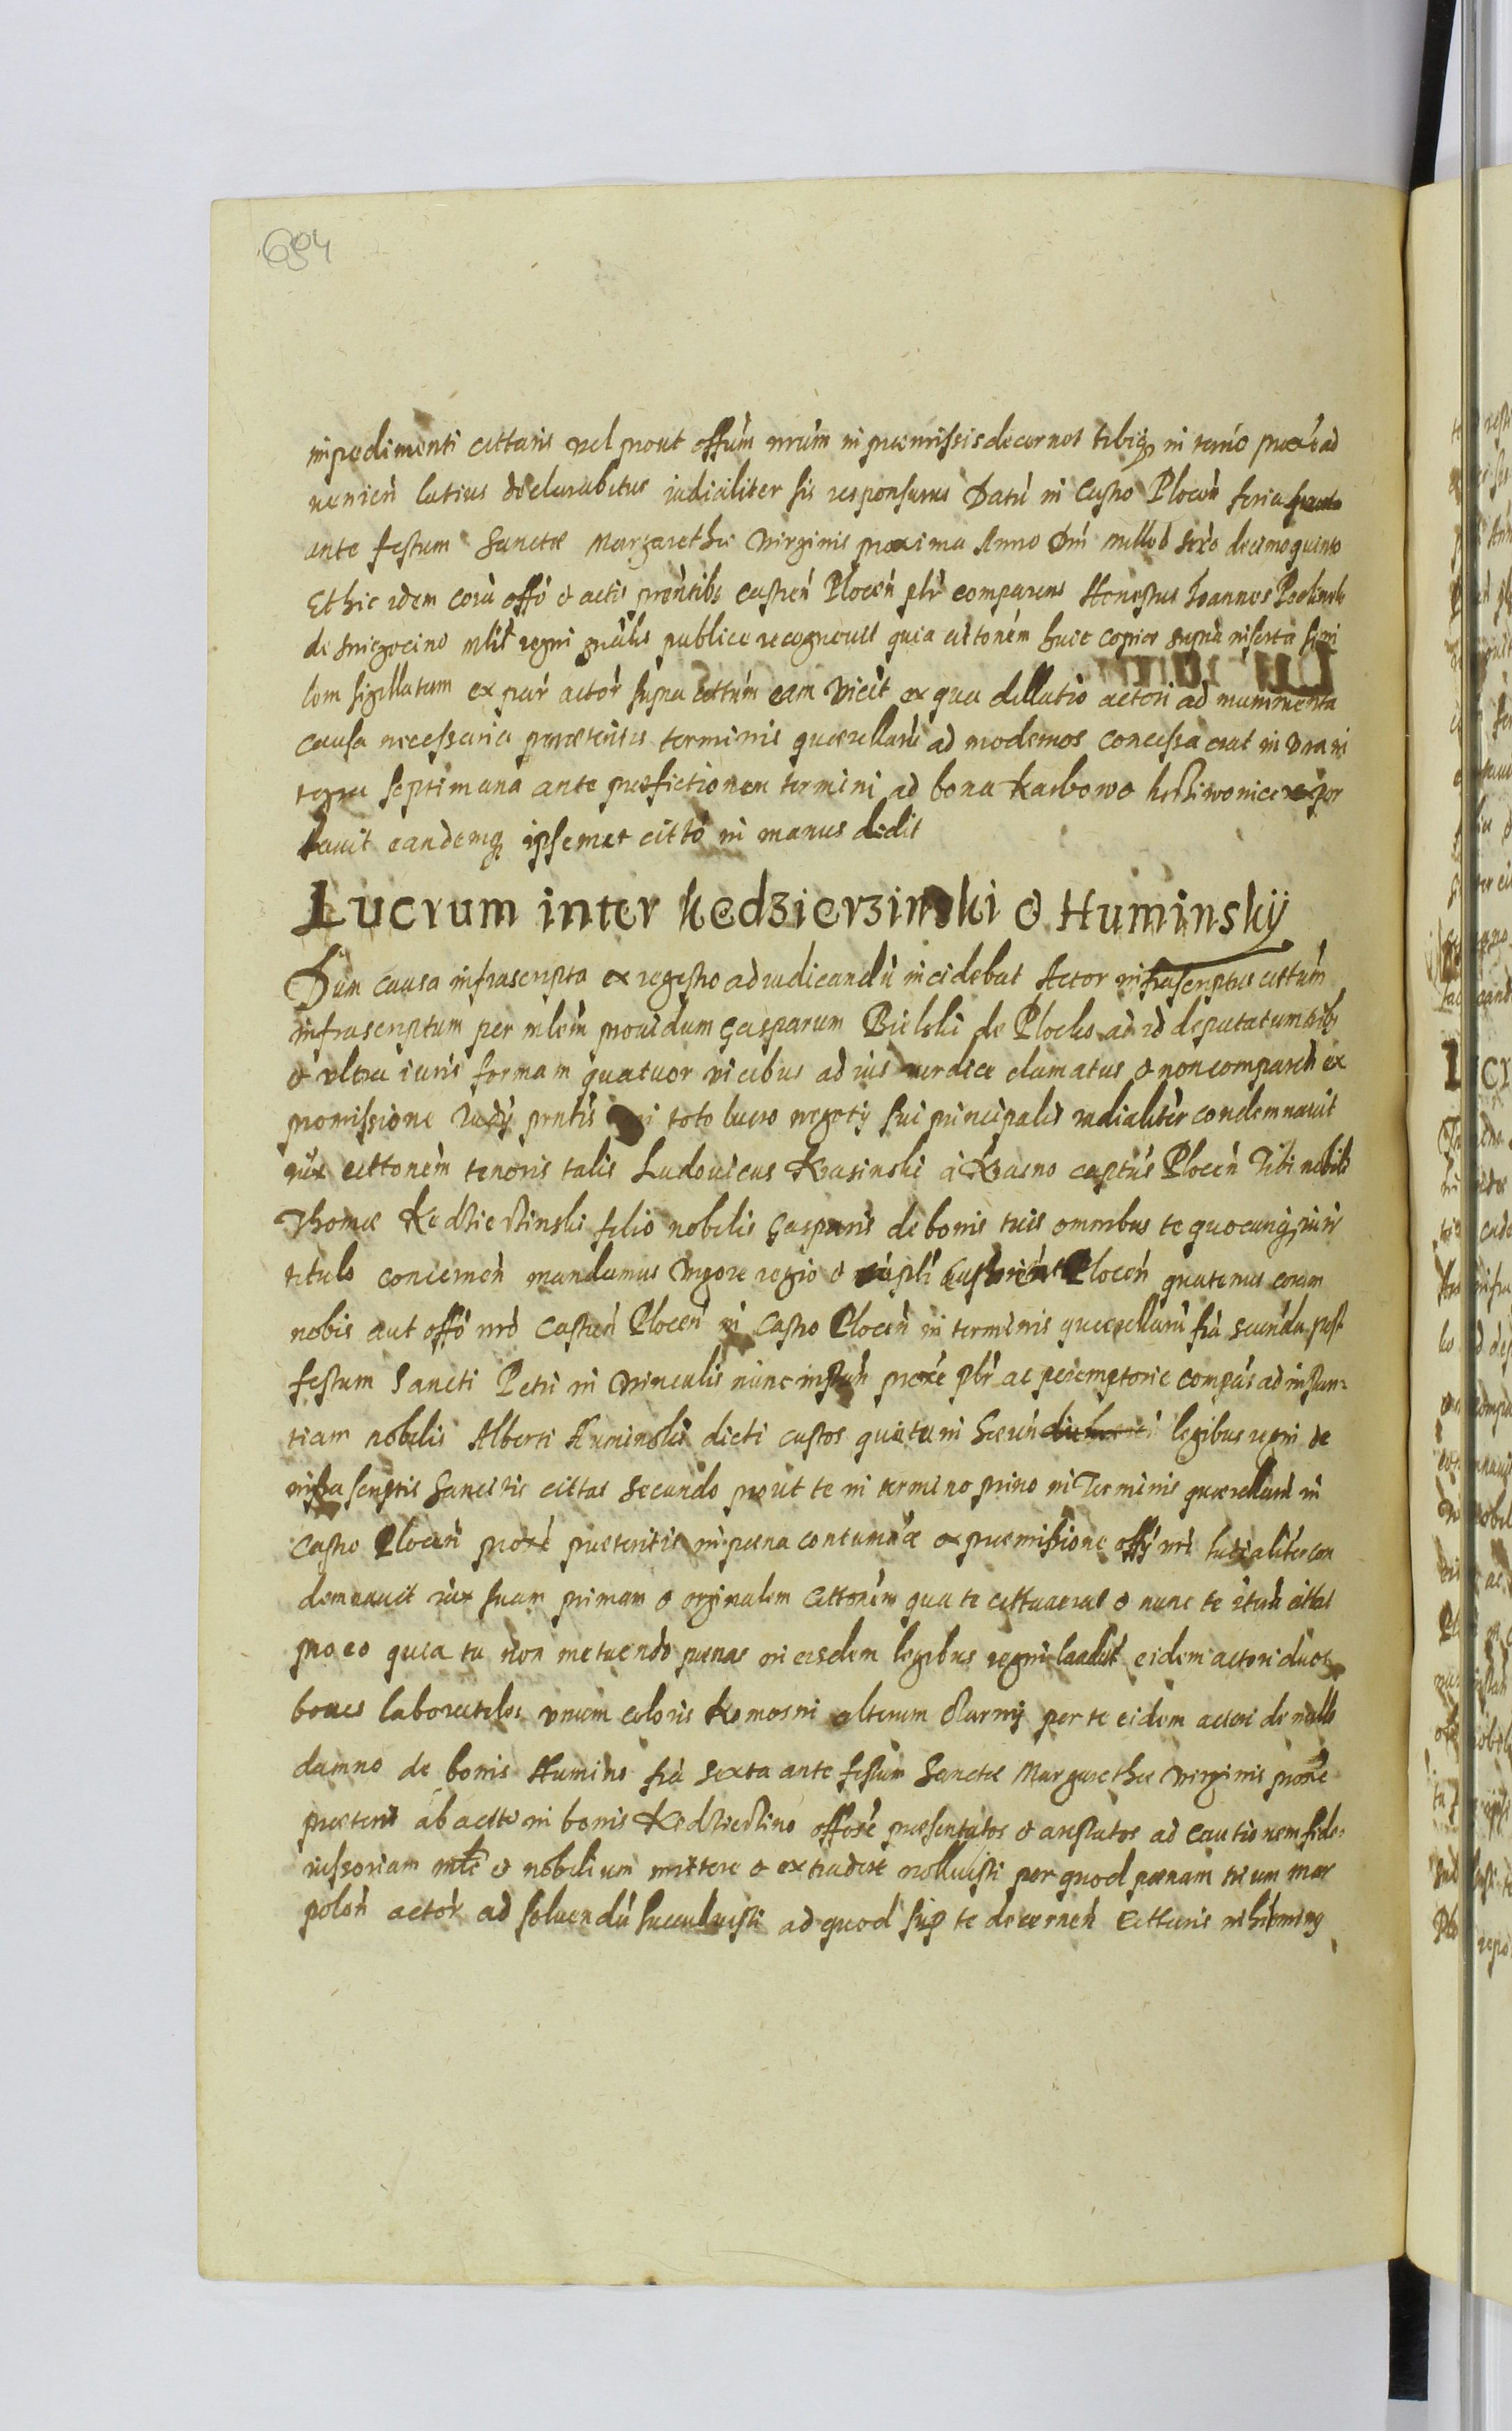 694
impedimenti cittaris vel prout offum nrum in praemissis decernet tibiq in terno proxe ad
venien latius declarabitur iudicialiter sis responsurus Datu in Castro Plocen feria
ante festum Sanctae Margarethae Virginis proxima Anno Dni milled sexo decimoquinto
Et hic idem cora offo & actis prentibs castren Plocen plr comparens Honestus Ioannes
de Sniegocino mlis regni gnalis publice recognouit quia cittonem huic copiae supra inserta simi
lem sigillatam ex par actor supra cittum eam vicit ex qua dillatio actori ad munimenta
causa necessaria praeteritis terminis quaerellaru ad modernos concessa erat in una in
tegra septimana ante praefictionem termini ad bona Karbowo repor
tauit eandemq ipsemet citto in manus dedit
Lucrum inter Kedzierzinski & Huminskÿ
Dum causa infrascripta ex regestro ad iudicandu incidebat Actor infrascriptus cittum
infrascriptum per mlem prouidum Gasparum Bielski de Plocko ad id deputatum trib
& ultra iuris formam quatuor vicibus ad ius verdice clamatus & non comparen ex
promissione Iudy prntis in toto lucro negoty sui principalis iudicialiter condemnauit
iux cittonem tenoris talis Ludouicus Krasinski a Krasno captus Plocen Tibi nobili
Thomae Kedzierzinski filio nobilis Gasparis de bonis tuis omnibus te quocunq iuris
titulo concernen mandamus vigore regio & Castrien Plocen quatenus coram
nobis aut offo nro Castren Plocen in Castro Plocen in terminis quaerellaru fia secunda post
festum Sancti Petri in Vinculis nunc instan proxe plr ac peremptorie compas ad instan=
tiam nobilis Alberti Huminski dicti custos quatum legibus regni de
infrascriptis sancitis cittas secundo prout te in termino primo in Terminis quaerellaru in
Castro Plocen proxe praeteritis in poena contumae ex praemissione offy nri iudicialiter con
demnauit iux suam primam & orginalem cittonem qua te cittauerat & nunc te itan cittat
pro eo quia tu non metuendo poenas in eisdem legibus regni laudit eidem actori duos
boues laboratiles unum coloris alterum czarny per te eidem actori de nullo
damno de bonis Humino fia sexta ante festum Sanctae Margarethae Virginis proxe
praeterit ab actto in bonis Kedzierzino offose praesentatos & arestatos ad cautionem fide=
iussoriam & nobilium mittere & extradere nolluisti per quod poenam trium mar
polon actor ad soluendu succubuisti ad quod sup te decernen cittaris nihilominq